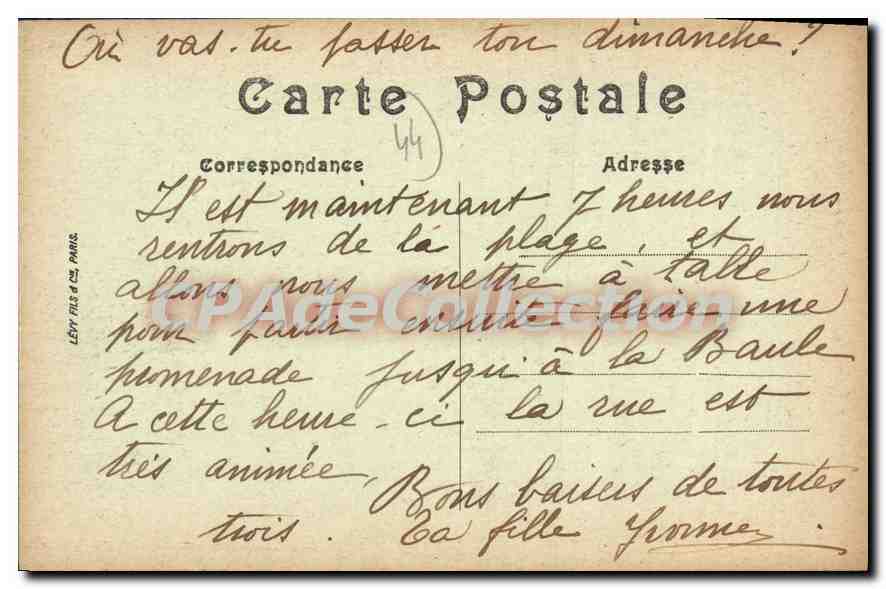 Où vas-tu passer ton dimanche?
Carte Postale
44
Correspondance
Adresse
Il est maintenant 7 heures nous
rentrons de la plage, et
allons nous mettre à table
pour partir ensuite faire une
promenade jusqu'à la Baule
A cette heure-ci la rue est
très animée,
Bons baisers de toutes
trois. Ta fille Yvonne.
LÉVY FILS & Cie, PARIS.
CPAdeCollection